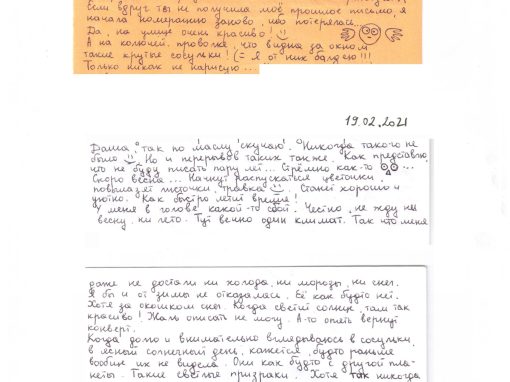 Если вдруг ты не получила моё прошлое письмо, я
начала нумерацию заново, ибо потерялась.
Да, на улице очень красиво!
А на колючей проволке, что видна за окном
такие крутые сосульки! (= Я от них балдею!!!
Только никак не нарисую...
19.02.2021
Даша, так по маслу 'скучаю'. Никогда такого не
было. Но и перерывов таких также. Как представлю,
что не буду писать пару лет... Стрёмно как-то ...
Скоро весна... Начнут распускаться цветочки.
повылазят листочки, травка. Станет хорошо и
уютно. Как быстро летит время!
У меня в голове какой-то сбой. Честно, не жду ни
весну, ни лето. Тут вечно один климат. Так что меня
даже не достали ни холода, ни морозы, ни снег.
Я бы и от зимы не отказалась. Её как будто нет.
Хотя за окошком снег. Когда светит солнце, там так
красиво! Жаль описать не могу. А-то опять вернут
конверт.
Когда долго и внимательно вглядываюсь в сосульки,
в ясный солнечный день, кажется, будто раньше
вообще их не видела. Они как будто с другой пла-
неты. Такие светлые призраки. Хотя так никогда